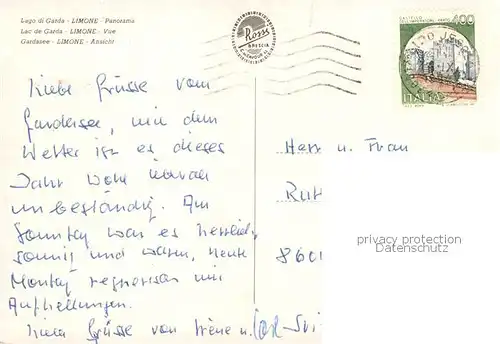 Lago di Garda - LIMONE - Panorama
Lac de Garda - LIMONE - Vue
Gardasee - LIMONE - Ansicht
Rossi
BRESCIA
400
CASTELLO
ITALIA
Liebe Grüsse vom
Gardasee, mit dem
Wetter ist es dieses
Jahr wohl überall
unbeständig. Am
Sonntag war es herrlich,
sonnig und warm, heute
Montag regnerisch mit
Aufhellungen.
Liebe Grüsse von Irène u.
Herr u. Frau
Rut
8601
privacy protection
Datenschutz